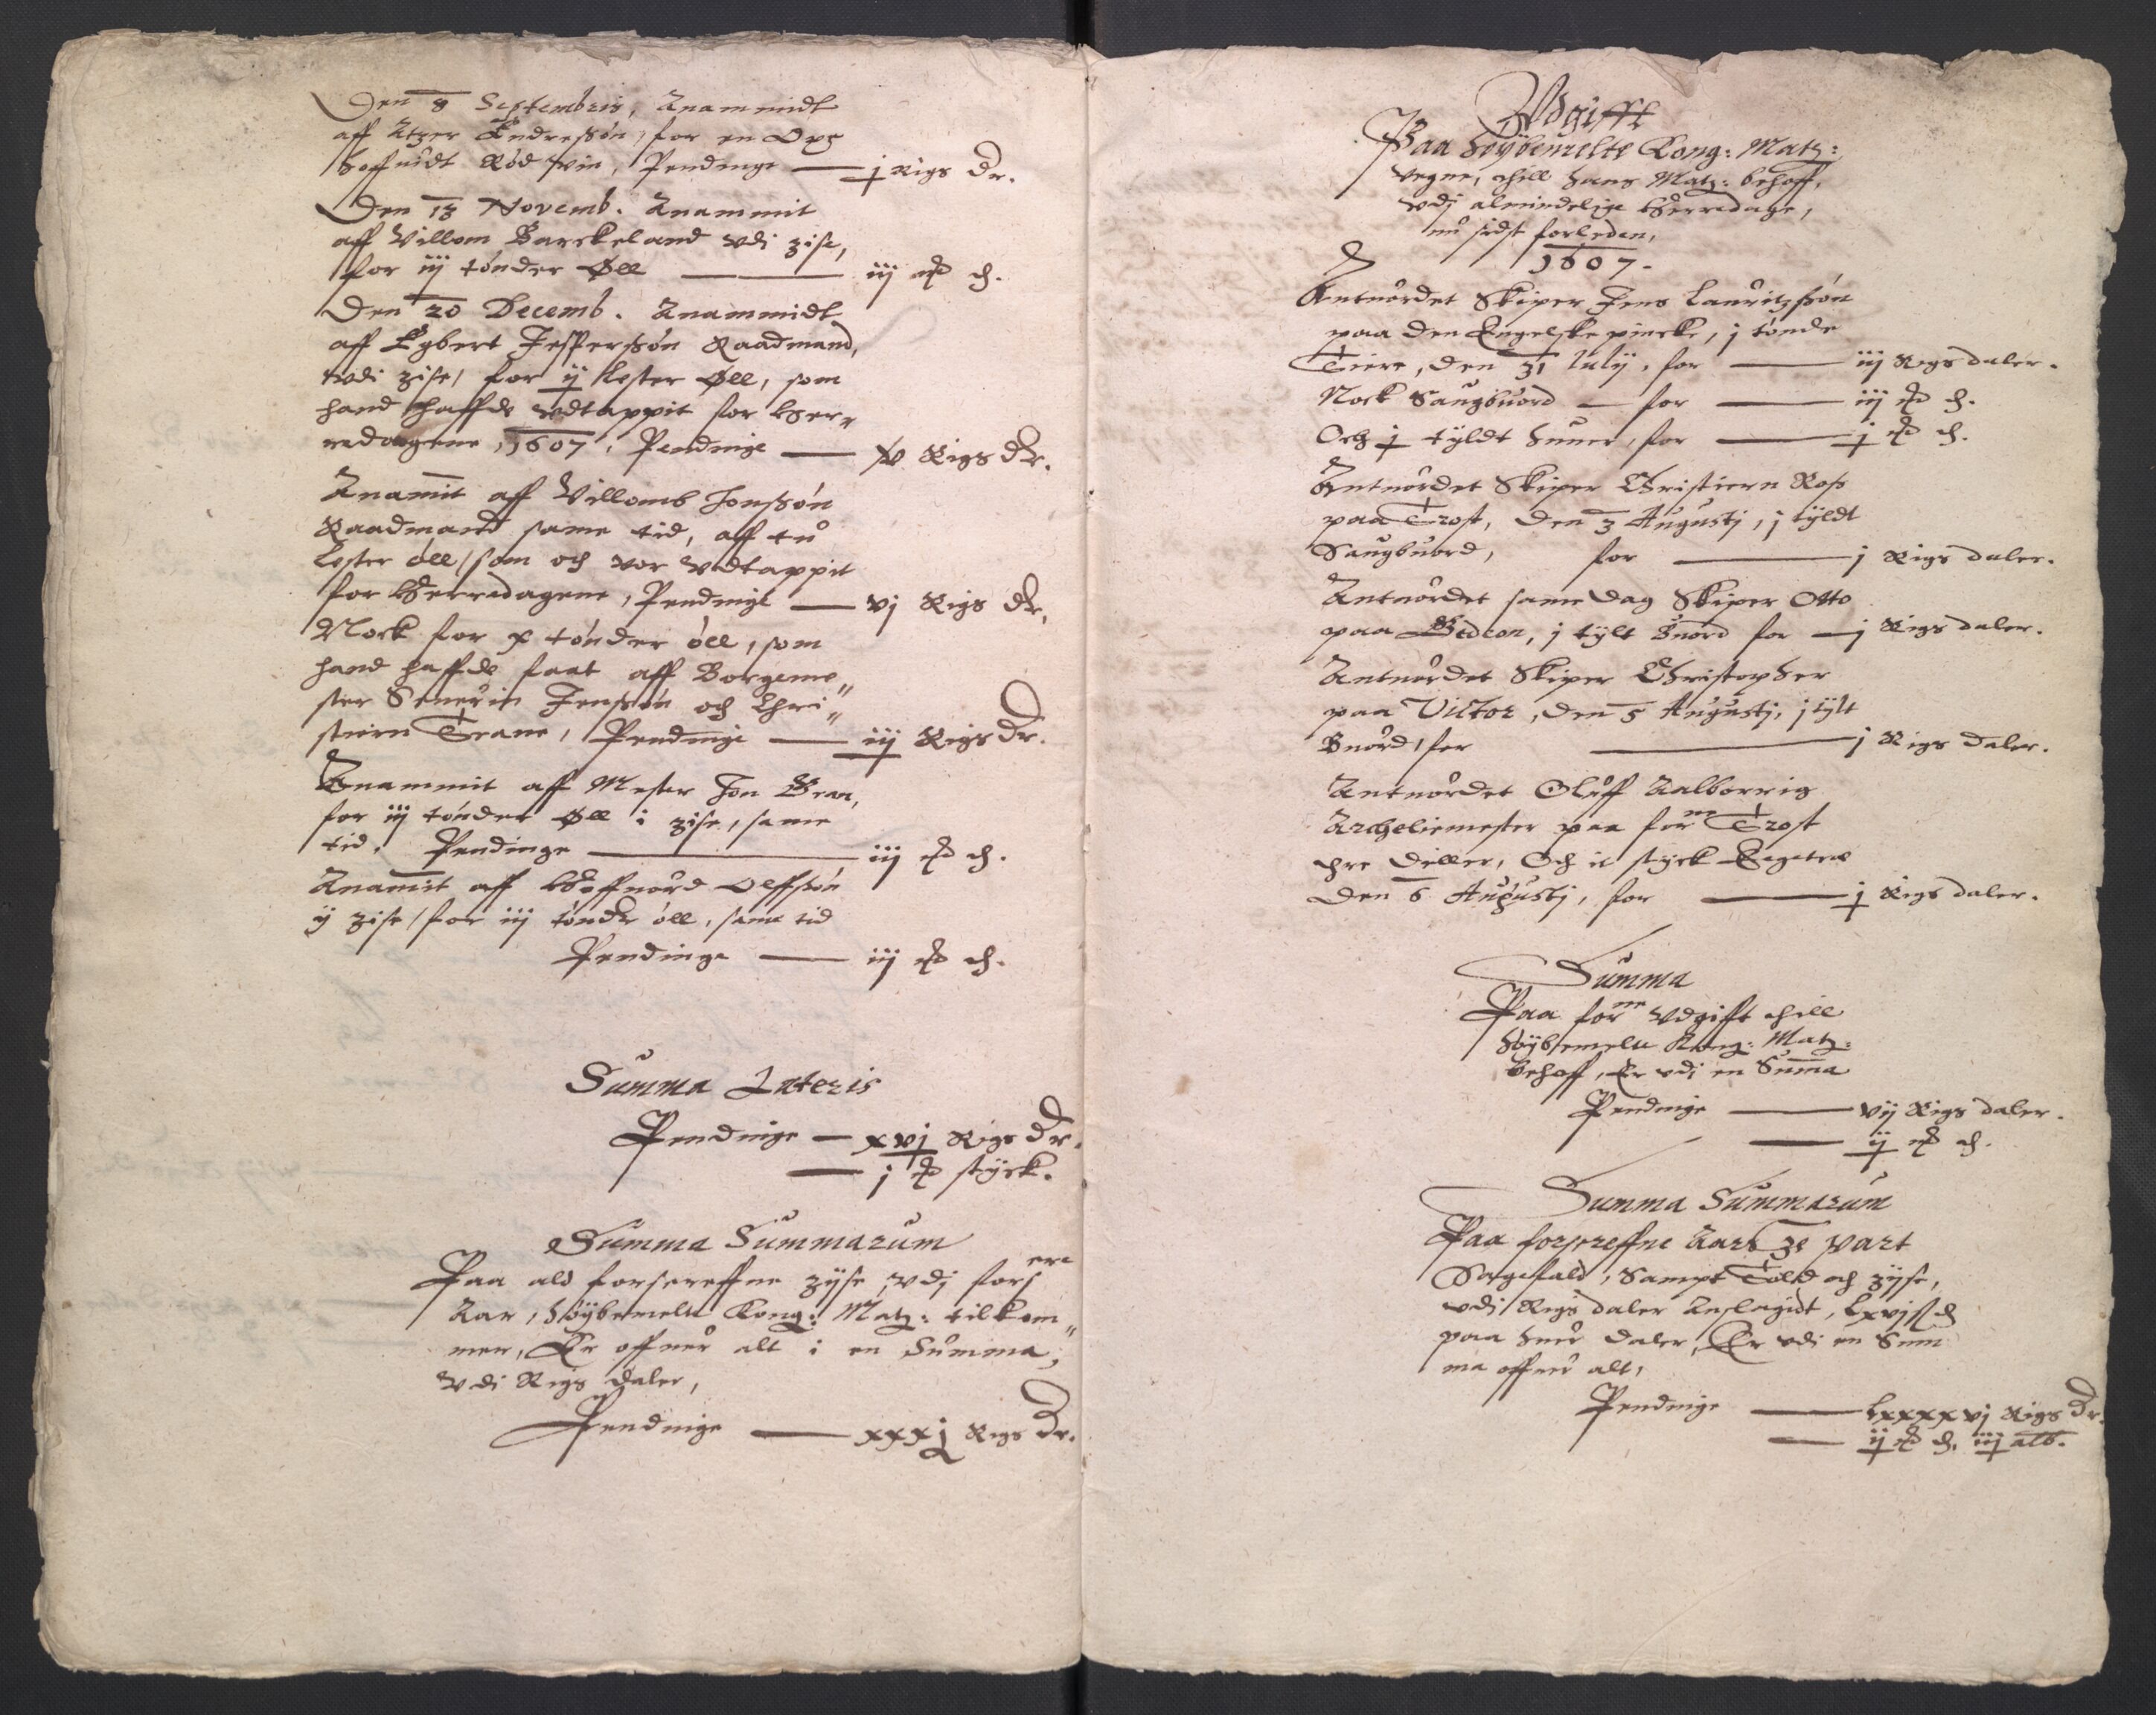 Den 8 Septembris, Anammidt
aff Atzer Endressøn, for en Oxe
hoffuidt Rød vin, Pendinge — j Rigs dr.
Den 13 Novemb. Anammit
aff Villom Barckeland vdi zise,
for iij tønder Øll — iij ort
Den 20 Decemb. Anammidt
aff Egbert Jesperssøn Raadmand,
vdi zise, for ij Lester Øll, som
hand haffde vdtappit for Herr„
redagene, 1607, Pendinge — v Rigs dr.
Anamit aff Villomb Jonssøn
Raadmand same tid, aff tu
Lester øll, som och vor vdtappit
for Herredagene, Pendinge — vj Rigs dr.
Nock for x tønder øll, som
hand haffde faat aff Borgeme„
ster Seuerin Jenssøn och Chri„
stiern Trane, Pendinge — iij Rigs dr.
Anammit aff Mester Jon
for iij tønder Øll i zise, same
tid. Pendinge — iij ort
Anamit aff Olffssøn
ij zise, for iij tønder øll, same tid
Pendinge — iij ort
Summa Lateris
Pendinge — xvj Rigs dr.
— j ort styck.
Summa Summarum
Paa ald forscreffne zijse, vdj forscre
Aar, Høybemelte Kong: Matz: tilkom„
mer, Er offuer alt i en Summa,
vdi Rigs daler,
Pendinge — xxxj Rigs dr.
Vdgifft
Paa Høybemelte Kong: Matz:
Vegne, thill hans Matz: behoff,
vdj almindelige Herredage,
nu sidst forleden,
1607.
Antuordet Skiper Jens Lauritzssøn
paa den Engelske pincke, j tønde
Tiere, den 31 Iulij, for — iij Rigs daler.
Nock Saugbuord — for — iij ort
Och j tyldt huner, for — j ort
Antuordet Skiper Christiern Ross
paa Trost, den 3 Augustj, j tyldt
Saugbuord, for — j Rigs daler.
Antuordet same dag Skiper Otto
paa Gedeon, j tylt Buord for — j Rigs daler.
Antuordet Skiper Christopher
paa Victor, den 5 Augustj, j tylt
Buord, for — j Rigs daler.
Antuordet Oluff Aalborrig
Archeliemester paa forne Trost
thre Diller, Och it styck Egetræ
Den 6 Augustj, for — j Rigs daler.
Summa
Paa forne Vdgifft thill
Høybemelte Kong: Matz:
behoff, Er vdi en Suma
Pendinge — vij Rigs daler.
— ij ort
Summa Summarum
Paa forscreffne Aars part
Sagefald, Sampt Told och zijse,
vdi Rigs daler Anslagidt,
paa huer daler, Er vdi en Sum
ma offuer alt,
Pendinge — Lxxxxvj Rigs dr.
— ij ort iij alb.